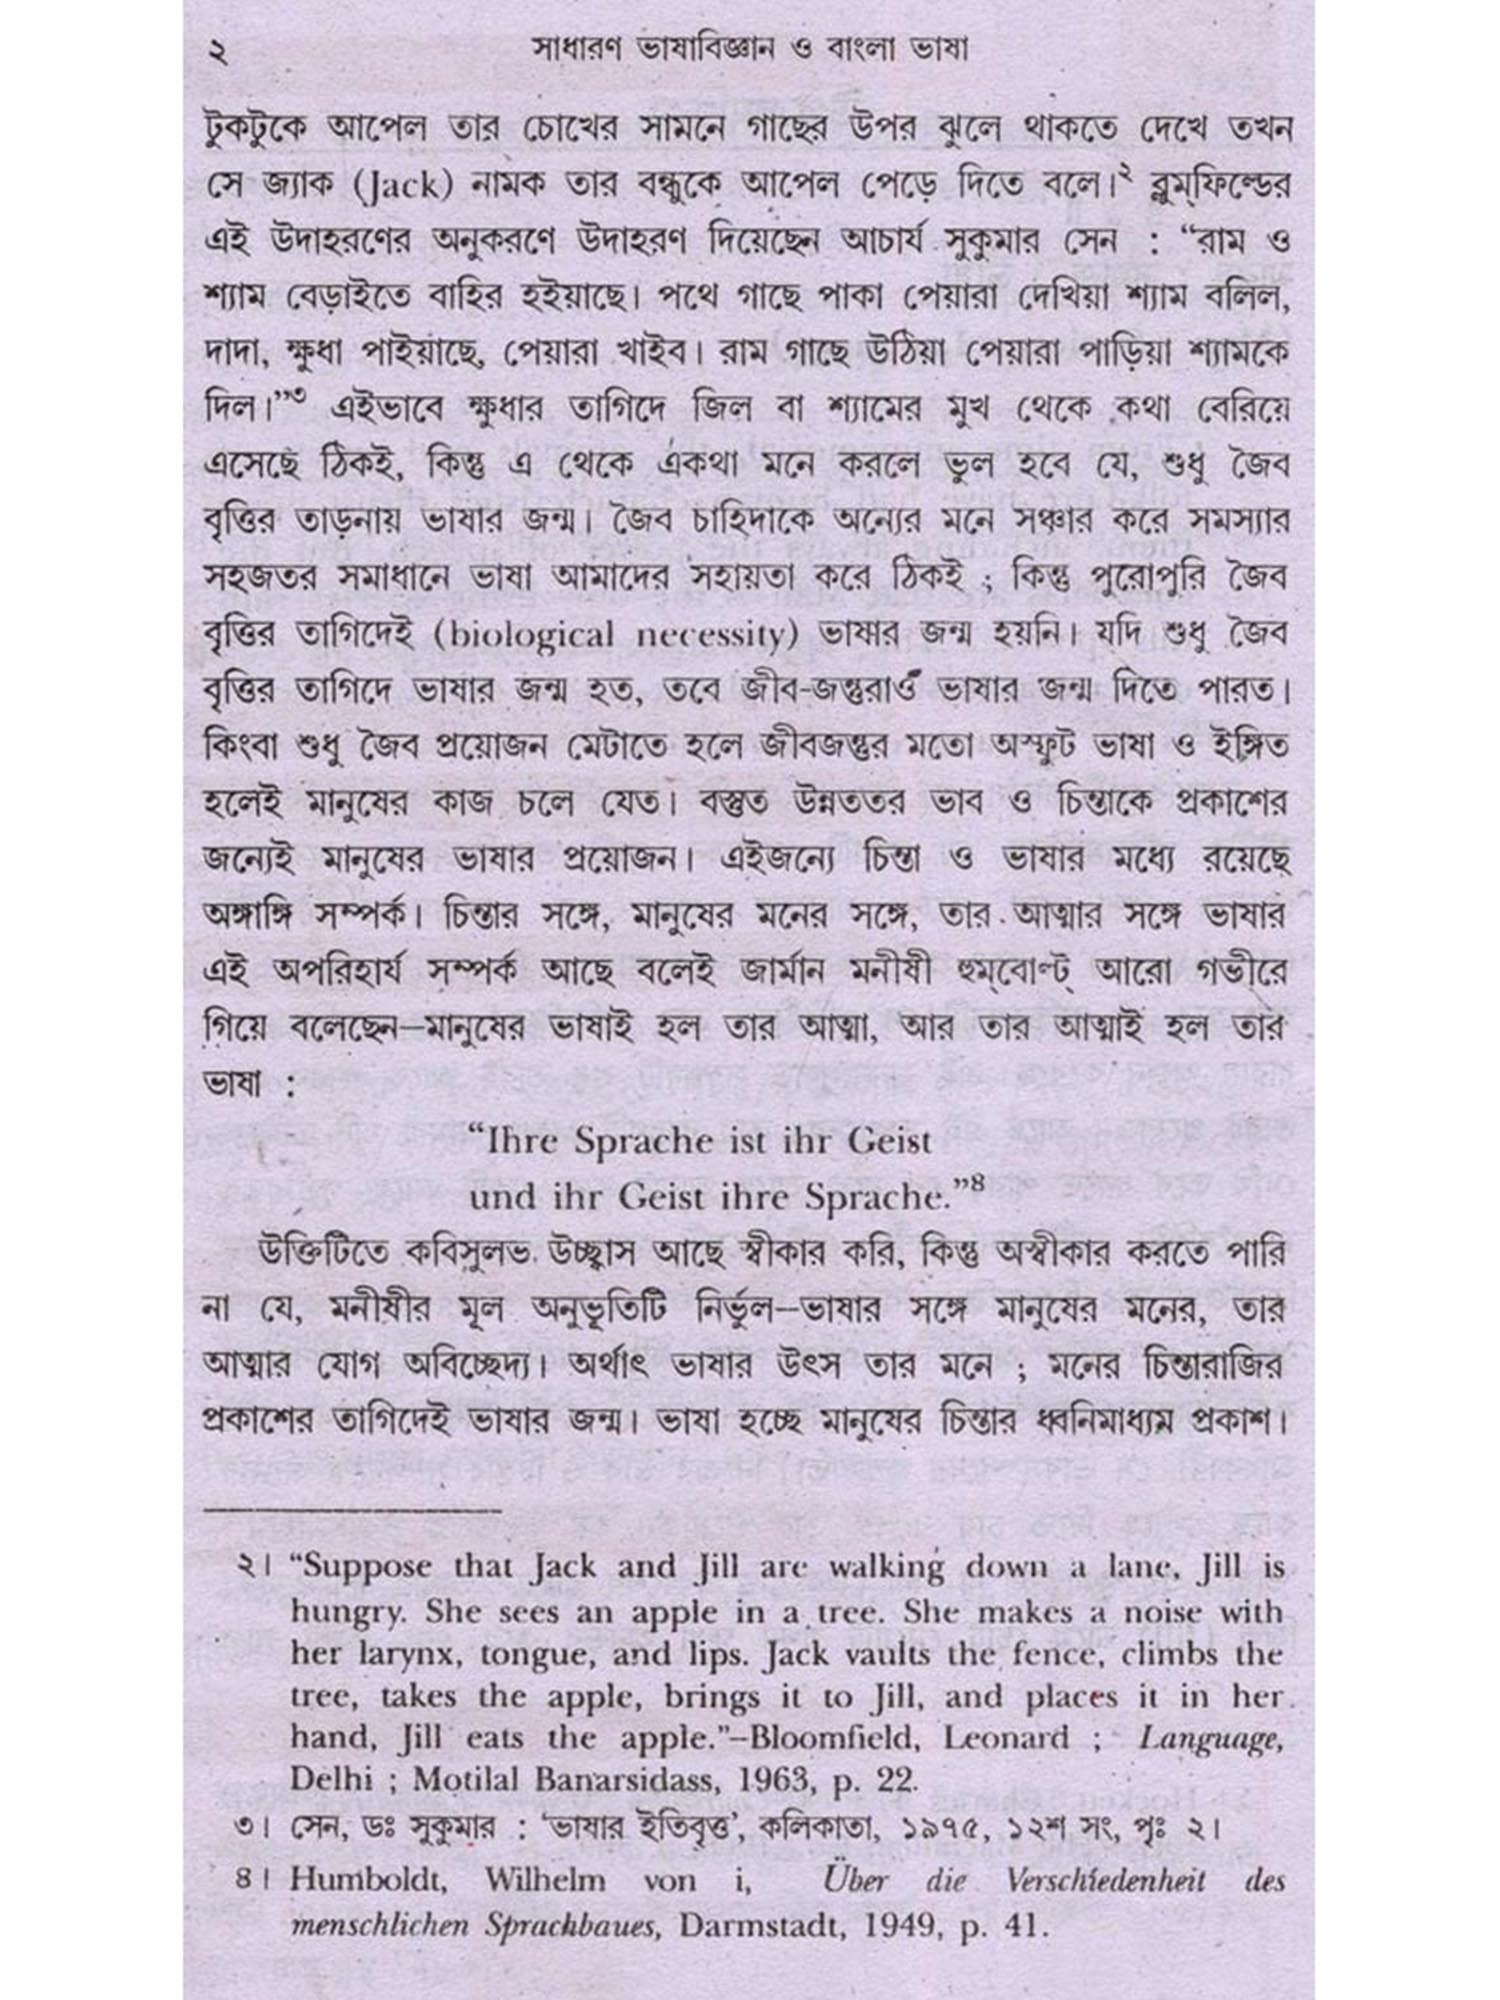 ২ সাধারণ ভাষাবিজ্ঞান ও বাংলা ভাষা
টুকটুকে আপেল তার চোখের সামনে গাছের উপর ঝুলে থাকতে দেখে তখন
সে জ্যাক (Jack) নামক তার বন্ধুকে আপেল পেড়ে দিতে বলে।২ ব্লুম্‌ফিল্ডের
এই উদাহরণের অনুকরণে উদাহরণ দিয়েছেন আচার্য সুকুমার সেন : “রাম ও
শ্যাম বেড়াইতে বাহির হইয়াছে। পথে গাছে পাকা পেয়ারা দেখিয়া শ্যাম বলিল,
দাদা, ক্ষুধা পাইয়াছে, পেয়ারা খাইব। রাম গাছে উঠিয়া পেয়ারা পাড়িয়া শ্যামকে
দিল।”৩ এইভাবে ক্ষুধার তাগিদে জিল বা শ্যামের মুখ থেকে কথা বেরিয়ে
এসেছে ঠিকই, কিন্তু এ থেকে একথা মনে করলে ভুল হবে যে, শুধু জৈব
বৃত্তির তাড়নায় ভাষার জন্ম। জৈব চাহিদাকে অন্যের মনে সঞ্চার করে সমস্যার
সহজতর সমাধানে ভাষা আমাদের সহায়তা করে ঠিকই ; কিন্তু পুরোপুরি জৈব
বৃত্তির তাগিদেই (biological necessity) ভাষার জন্ম হয়নি। যদি শুধু জৈব
বৃত্তির তাগিদে ভাষার জন্ম হত, তবে জীব-জন্তুরাও ভাষার জন্ম দিতে পারত।
কিংবা শুধু জৈব প্রয়োজন মেটাতে হলে জীবজন্তুর মতো অস্ফুট ভাষা ও ইঙ্গিত
হলেই মানুষের কাজ চলে যেত। বস্তুত উন্নততর ভাব ও চিন্তাকে প্রকাশের
জন্যেই মানুষের ভাষার প্রয়োজন। এইজন্যে চিন্তা ও ভাষার মধ্যে রয়েছে
অঙ্গাঙ্গি সম্পর্ক। চিন্তার সঙ্গে, মানুষের মনের সঙ্গে, তার আত্মার সঙ্গে ভাষার
এই অপরিহার্য সম্পর্ক আছে বলেই জার্মান মনীষী হুম্‌বোল্ট্ আরো গভীরে
গিয়ে বলেছেন—মানুষের ভাষাই হল তার আত্মা, আর তার আত্মাই হল তার
ভাষা :
“Ihre Sprache ist ihr Geist
und ihr Geist ihre Sprache.”৪
উক্তিটিতে কবিসুলভ উচ্ছ্বাস আছে স্বীকার করি, কিন্তু অস্বীকার করতে পারি
না যে, মনীষীর মূল অনুভূতিটি নির্ভুল—ভাষার সঙ্গে মানুষের মনের, তার
আত্মার যোগ অবিচ্ছেদ্য। অর্থাৎ ভাষার উৎস তার মনে ; মনের চিন্তারাজির
প্রকাশের তাগিদেই ভাষার জন্ম। ভাষা হচ্ছে মানুষের চিন্তার ধ্বনিমাধ্যম প্রকাশ।
২। “Suppose that Jack and Jill are walking down a lane, Jill is
hungry. She sees an apple in a tree. She makes a noise with
her larynx, tongue, and lips. Jack vaults the fence, climbs the
tree, takes the apple, brings it to Jill, and places it in her
hand, Jill eats the apple.”—Bloomfield, Leonard ; Language,
Delhi ; Motilal Banarsidass, 1963, p. 22.
৩। সেন, ডঃ সুকুমার : ‘ভাষার ইতিবৃত্ত’, কলিকাতা, ১৯৭৫, ১২শ সং, পৃঃ ২।
৪। Humboldt, Wilhelm von i, Über die Verschiedenheit des
menschlichen Sprachbaues, Darmstadt, 1949, p. 41.